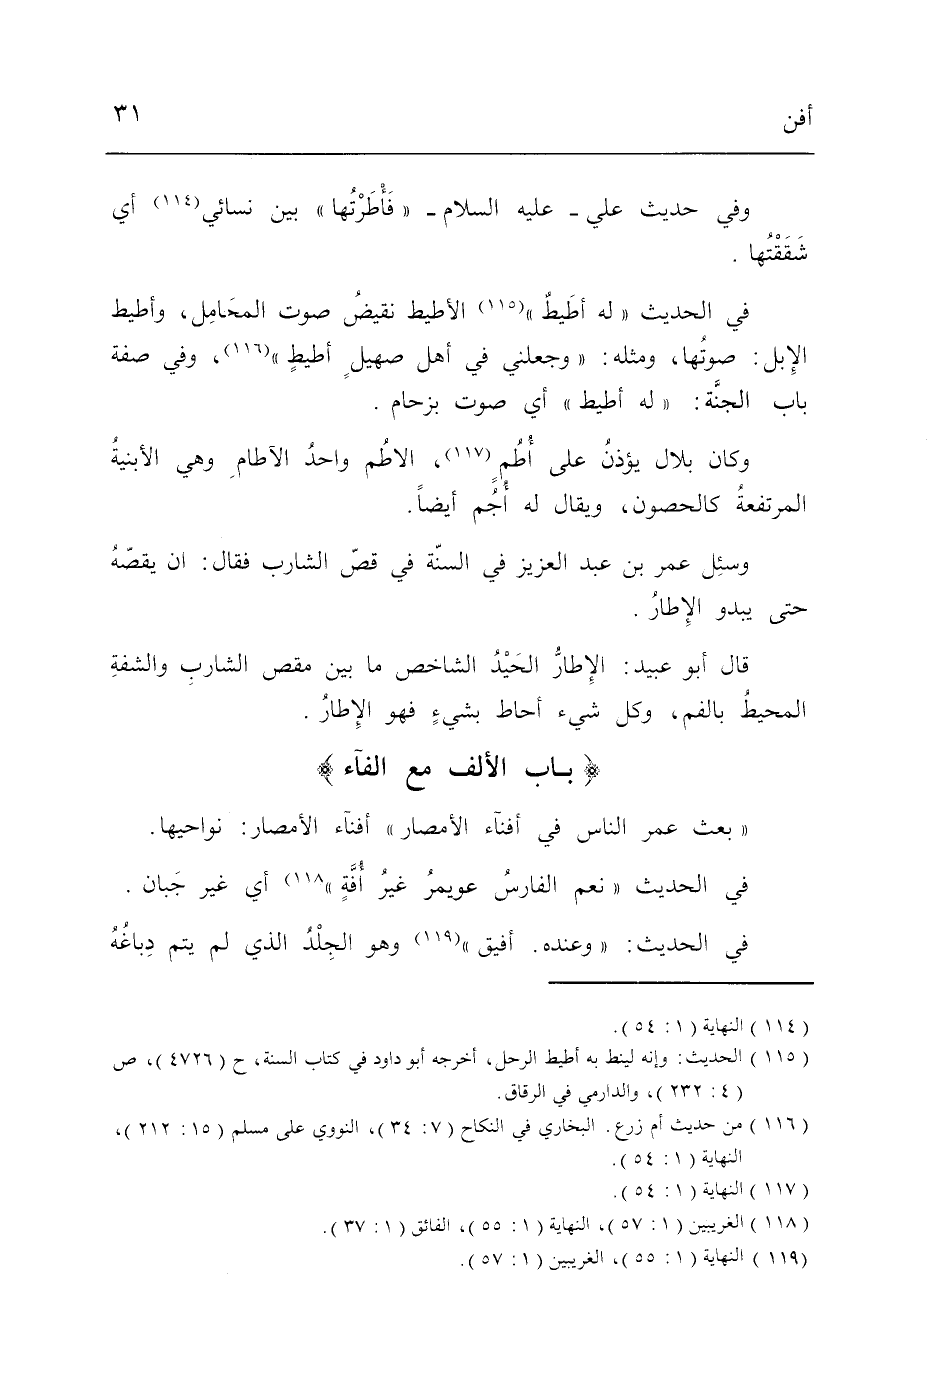 أفن
٣١
وفي حديث علي ـ عليه السلام ـ « فَأَطَرْتُها » بين نسائي(١١٤) أي
شَقَقْتُها .
في الحديث « له أطَيطٌ »(١١٥) الأطيط نقيضُ صوت المحَامِل، وأطيط
الإِبل: صوتُها، ومثله: « وجعلني في أهل صهيلٍ أطيطٍ »(١١٦)، وفي صفة
باب الجنَّة: « له أطيط » أي صوت بزحام .
وكان بلال يؤذنُ على أُطُمٍ(١١٧)، الاطُم واحدُ الآطامِ وهي الأبنيةُ
المرتفعةُ كالحصون، ويقال له أُجُم أيضاً.
وسئِل عمر بن عبد العزيز في السنّة في قصّ الشارب فقال: ان يقصّهُ
حتى يبدو الإِطارُ .
قال أبو عبيد: الإِطارُ الحَيْدُ الشاخص ما بين مقص الشاربِ والشفةِ
المحيطُ بالفم، وكل شيء أحاط بشيءٍ فهو الإِطارُ .
﴿ بـاب الألف مع الفآء ﴾
« بعث عمر الناس في أفنآء الأمصار » أفنآء الأمصار: نواحيها.
في الحديث « نعم الفارسُ عويمرُ غيرُ أُفَّةٍ »(١١٨) أي غير جَبان .
في الحديث: « وعنده. أفيق »(١١٩) وهو الجِلْدُ الذي لم يتم دِباغُهُ
(١١٤) النهاية (١: ٥٤).
(١١٥) الحديث: وإنه لينط به أطيط الرحل، أخرجه أبو داود في كتاب السنة، ح (٤٧٢٦)، ص
(٤: ٢٣٢)، والدارمي في الرقاق.
(١١٦) من حديث أم زرع. البخاري في النكاح (٧: ٣٤)، النووي على مسلم (١٥: ٢١٢)،
النهاية (١: ٥٤).
(١١٧) النهاية (١: ٥٤).
(١١٨) الغريبين (١: ٥٧)، النهاية (١: ٥٥)، الفائق (١: ٣٧).
(١١٩) النهاية (١: ٥٥)، الغريبين (١: ٥٧).